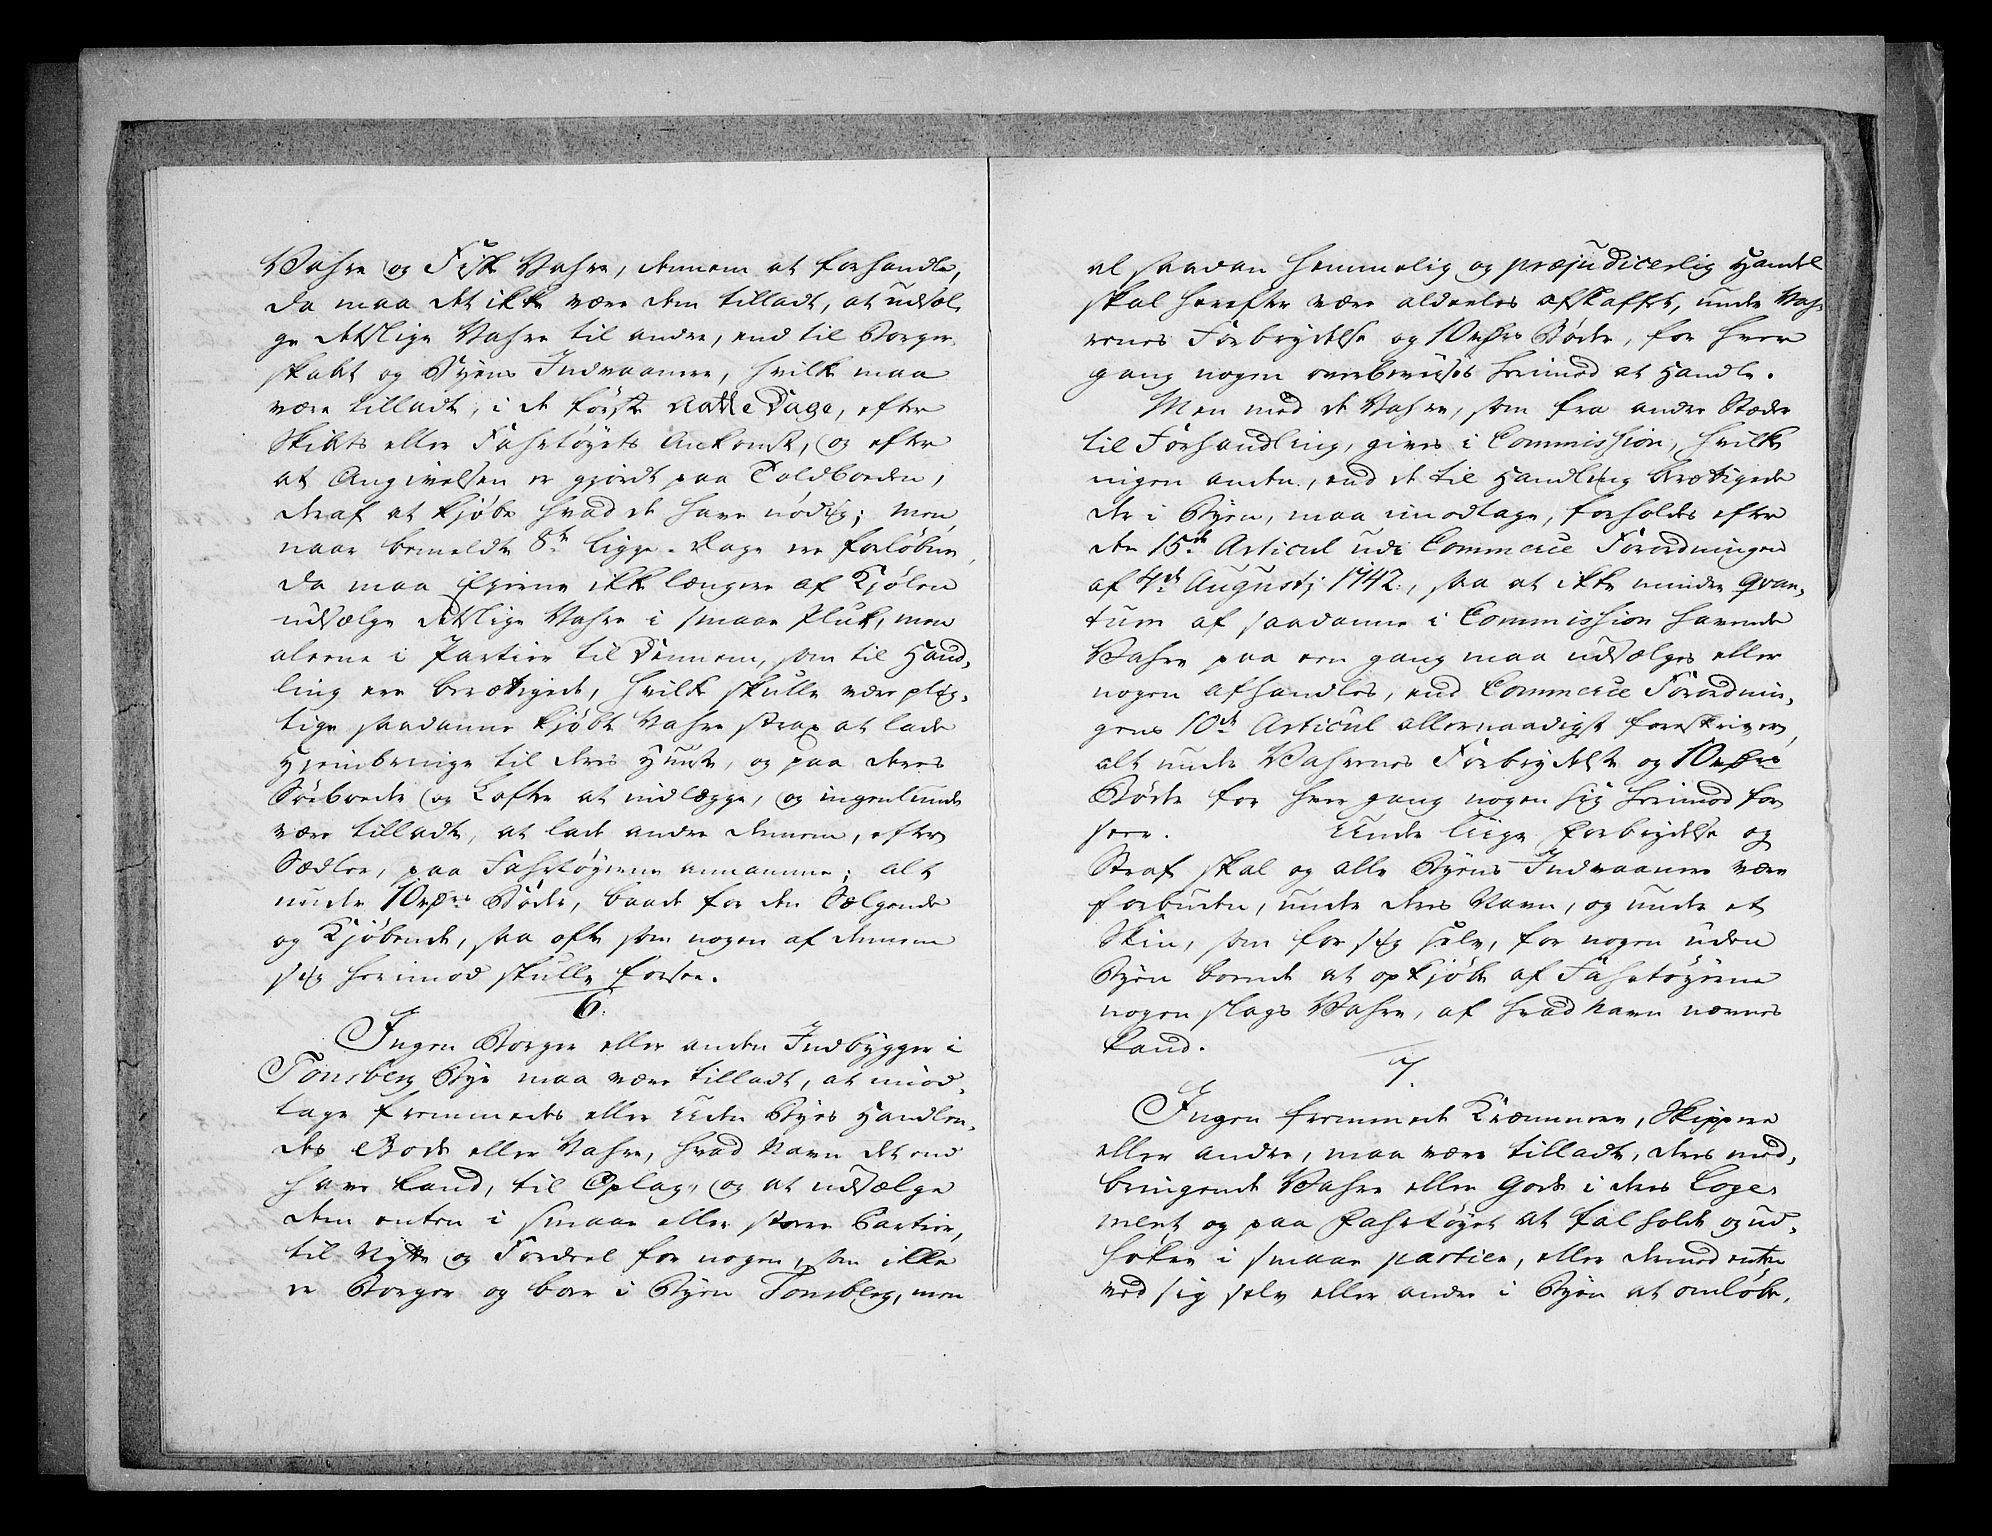 Vahre og Fisk Vahre, dennem at forhandle,
da maa det ikke være dem tilladt, at udsæl,
ge deslige Vahre til andre, end til Borger,
skabet og Byens Indvaanere, hvilke maa
være tilladt, i de første Aatte Dage, efter
Skibets eller Fahrtøyets Ankomst, og efter
at Angivelsen er gjordt paa Toldboeden,
deraf at kjøbe hvad de have nødig; men,
naar bemeldte 8te ligge-Dage ere forløbne,
da maa Eierne ikke længere af Kjølen
udsælge deslige Vahre i smaae Pluk, men
aleene i Partier til Dennem, som til Hand,
ling ere berættigede, hvilke skulle være plig,
tige saadanne kjøbte Vahre strax at lade
hjembringe til deres Huuse, og paa deres
Søeboder og Lofter at indlægge, og ingenlunde
være tilladt, at lade andre dennem, efter
Sædler, paa Fahrtøyerne annamme; alt
under 10 rdrs Bøder, baade for den Sælgende
og Kjøbende, saa ofte som nogen af dennem
sig herimod skulle forsee.
6.
Ingen Borger eller anden Indbygger i
Tønsberg Bye maa være tilladt, at imod,
tage fremmedes eller Uden Byes Handlen,
des Gods eller Vahre, hvad Navn det end
have kand, til Oplag, og at udsælge
dem enten i smaae eller større Partier,
til Nytte og Fordeel for nogen, som ikke
er Borger og boer i Byen Tonsberg, men
al saadan hemmelig og præjudicerlig Handel
skal herefter være aldeeles afskaffet, under Vah,
renes Forbrydelse og 10 rdrs Bøder, for hver
gang nogen overbeviises herimod at Handle.
Men med de Vahre, som fra andre Stæder
til Forhandling, gives i Commission, hvilke
ingen anden, end de til Handling berættigede
der i Byen, maa imodtage, forholdes efter
den 15de Articul udi Commerce Forordningen
af 4de Augustj 1742., saa at ikke mindre Qvan,
tum af saadanne i Commission havende
Vahre paa een gang maa udsælges eller
nogen afhandles, end Commerce Forordnin,
gens 10de Articul allernaadigst foreskriver,
alt under Vahrenes Forbrydelse og 10 rdrs
Bøder for hver gang nogen sig herimod for
seer. Under liige Forbrydelse og
Straf skal og alle Byens Indvaanere være
forbuden, under deres Navn, og under et
Skin, som for sig selv, for nogen uden
Byen boende at opkjøbe af Fahrtøyerne
nogen slags Vahre, af hvad Navn nævnes
kand.
7.
Ingen fremmede Kræmmere, Skippere
eller andre, maa være tilladt, deres med,
bringende Vahre eller Gods i deres Loge,
ment og paa Fahrtøyet at fal holde og ud,
høkre i smaae partier, eller dermed enten
ved sig selv eller andre i Byen at omløbe,